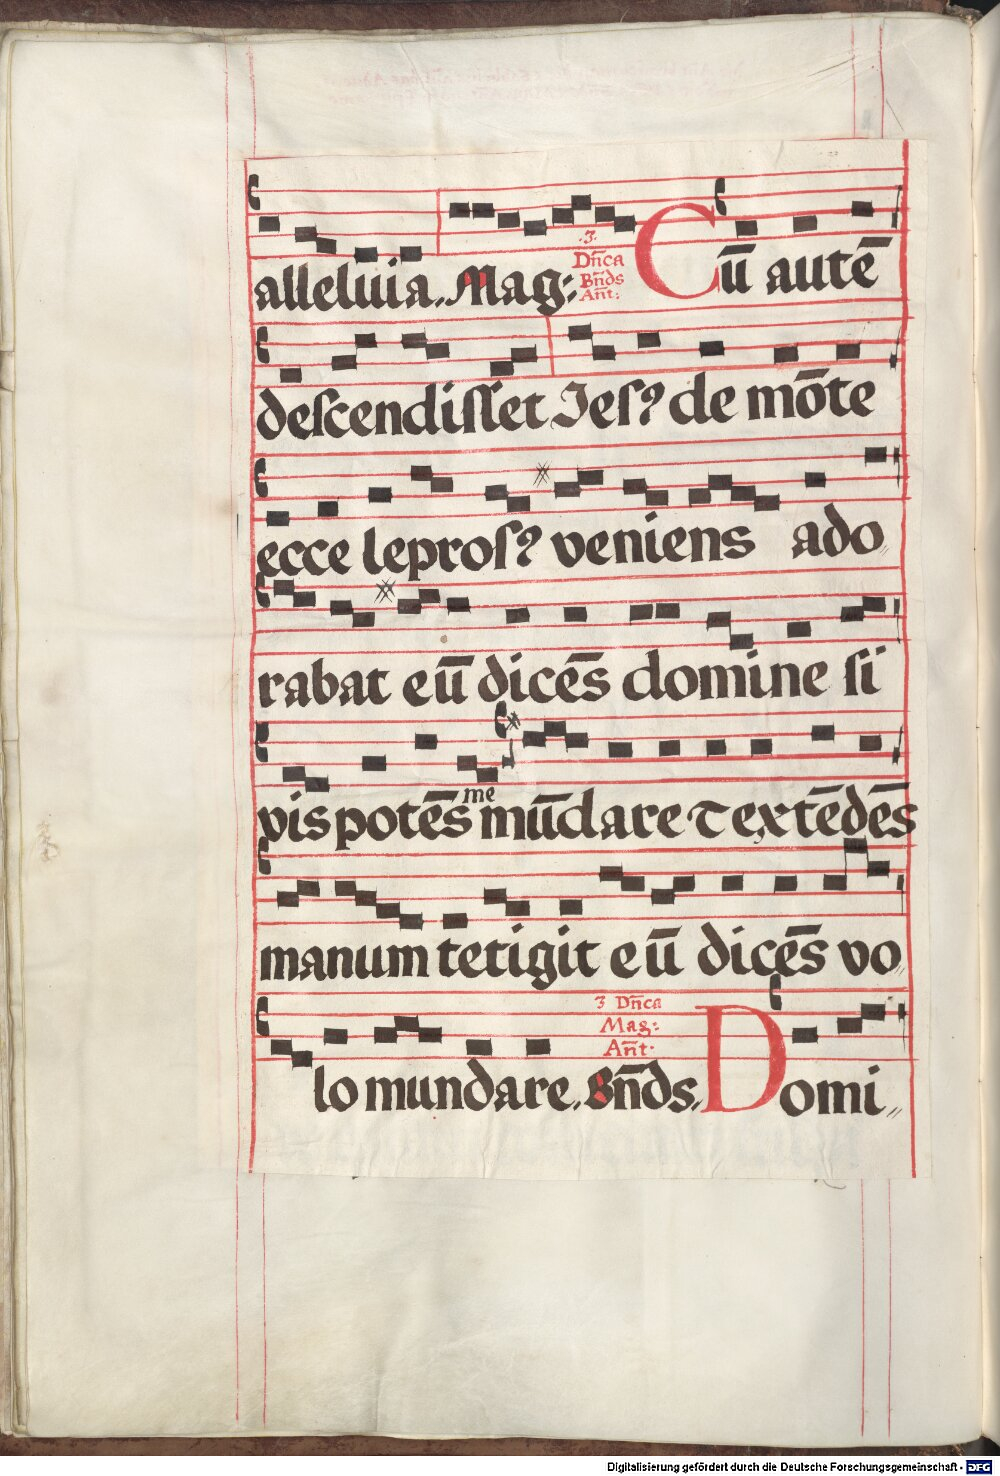 alleluia. Mag:
·3·
Dn̄ca
Bn̄ds
An̄t:
Cū autē
descendisset Jesꝰ de mōte
ecce leprosꝰ veniens ado
rabat eū dicēs domine si
vis potēs me mūdare ⁊ extēdēs
manum tetigit eū dicēs vo
3 Dn̄ca
Mag:
An̄t·
lo mundare. Bn̄ds. Domi
Digitalisierung gefördert durch die Deutsche Forschungsgemeinschaft - DFG